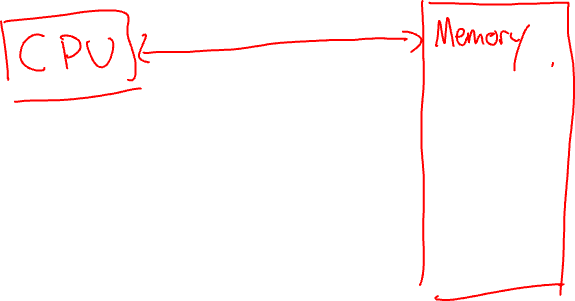 CPU
Memory